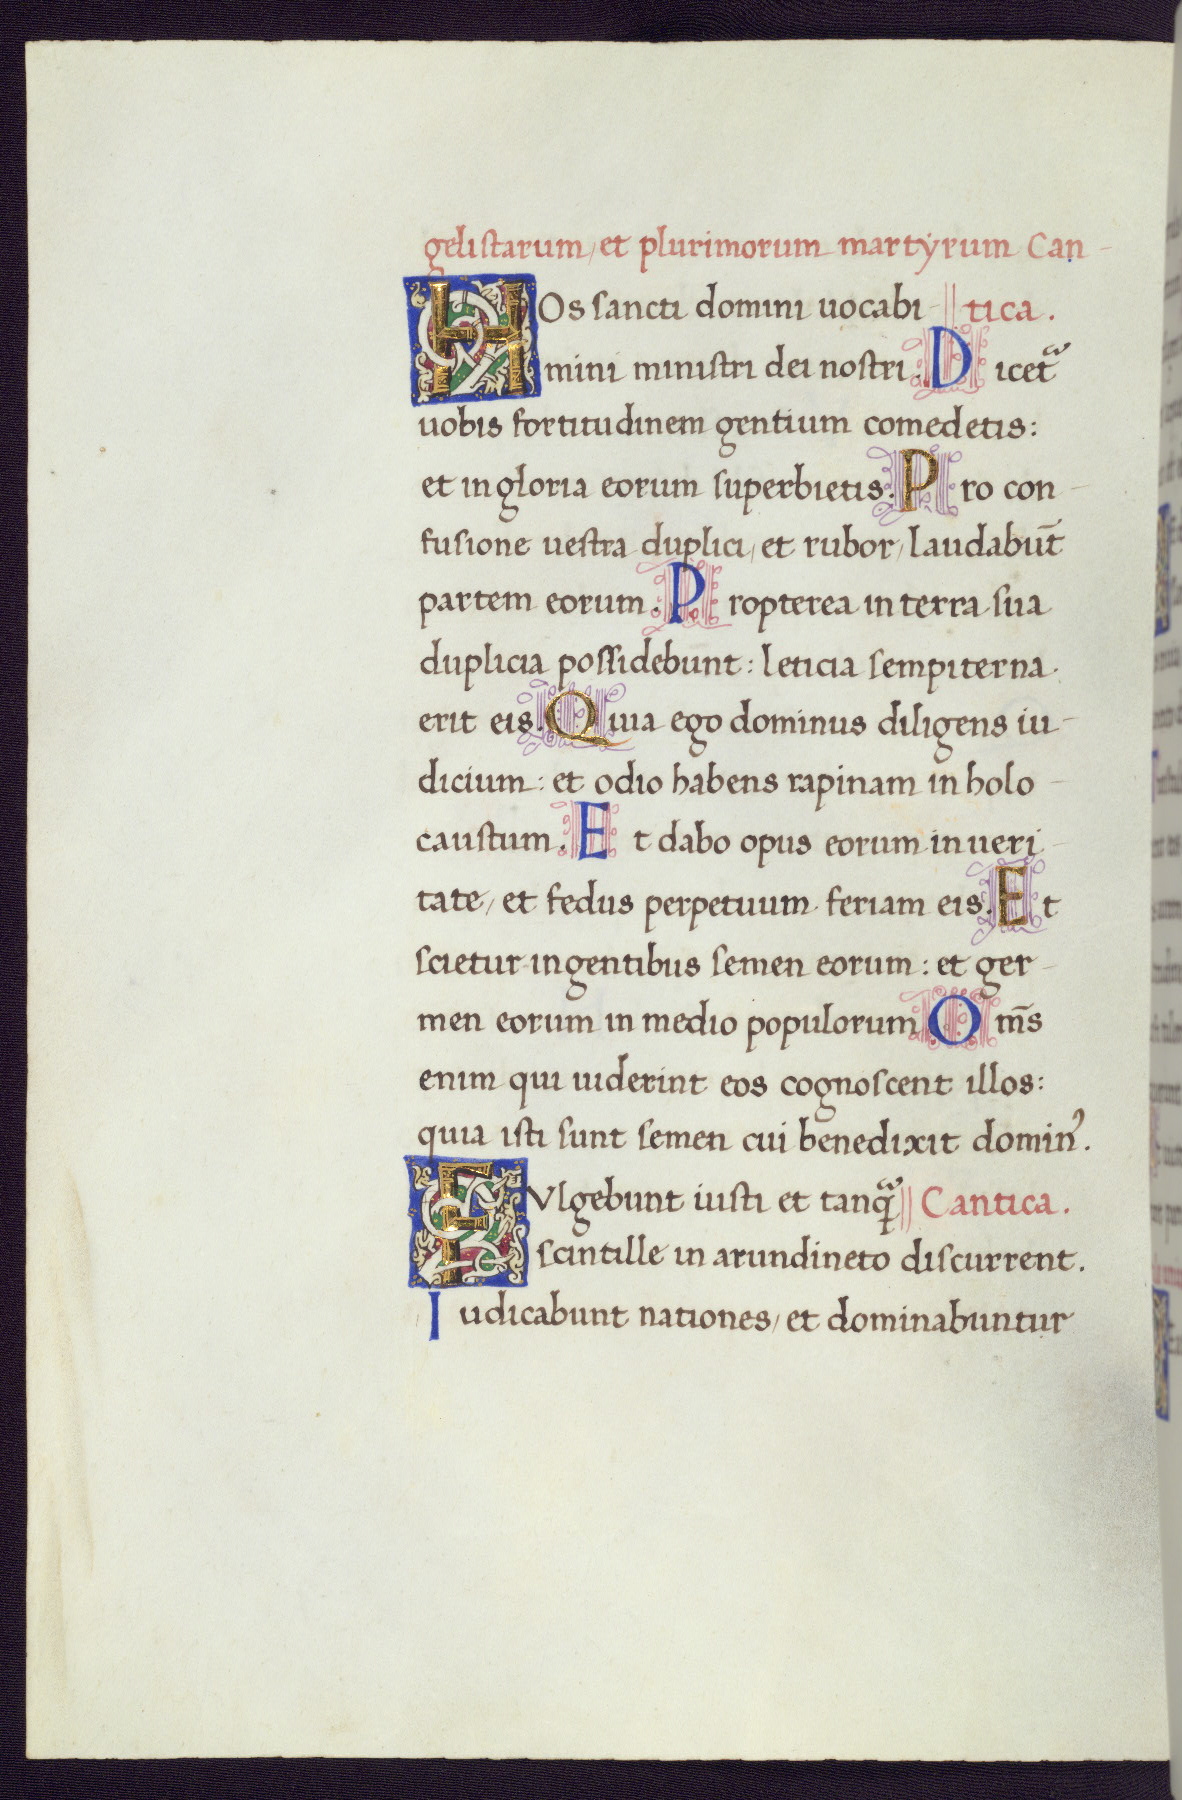 geliſtarum, et plurimorum martÿrum Can-
HOs ſancti domini uocabi- tica.
mini miniſtri dei noſtri. Dicet᷑
uobis fortitudinem gentium comedetis:
et in gloria eorum ſuperbietis. Pro con-
fuſione ueſtra duplici, et rubor, laudabūt
partem eorum. Propterea in terra ſua
duplicia poſſidebunt: leticia ſempiterna
erit eis. Quia ego dominus diligens iu-
dicium: et odio habens rapinam in holo-
cauſtum. Et dabo opus eorum in ueri-
tate, et fedus perpetuum feriam eis. Et
ſcietur in gentibus ſemen eorum: et ger-
men eorum in medio populorum Om̄s
enim qui uiderint eos cognoſcent illos:
quia iſti ſunt ſemen cui benedixit dominꝰ.
FVlgebunt iuſti et tanqᷓ Cantica.
ſcintille in arundineto diſcurrent.
Iudicabunt nationes, et dominabuntur